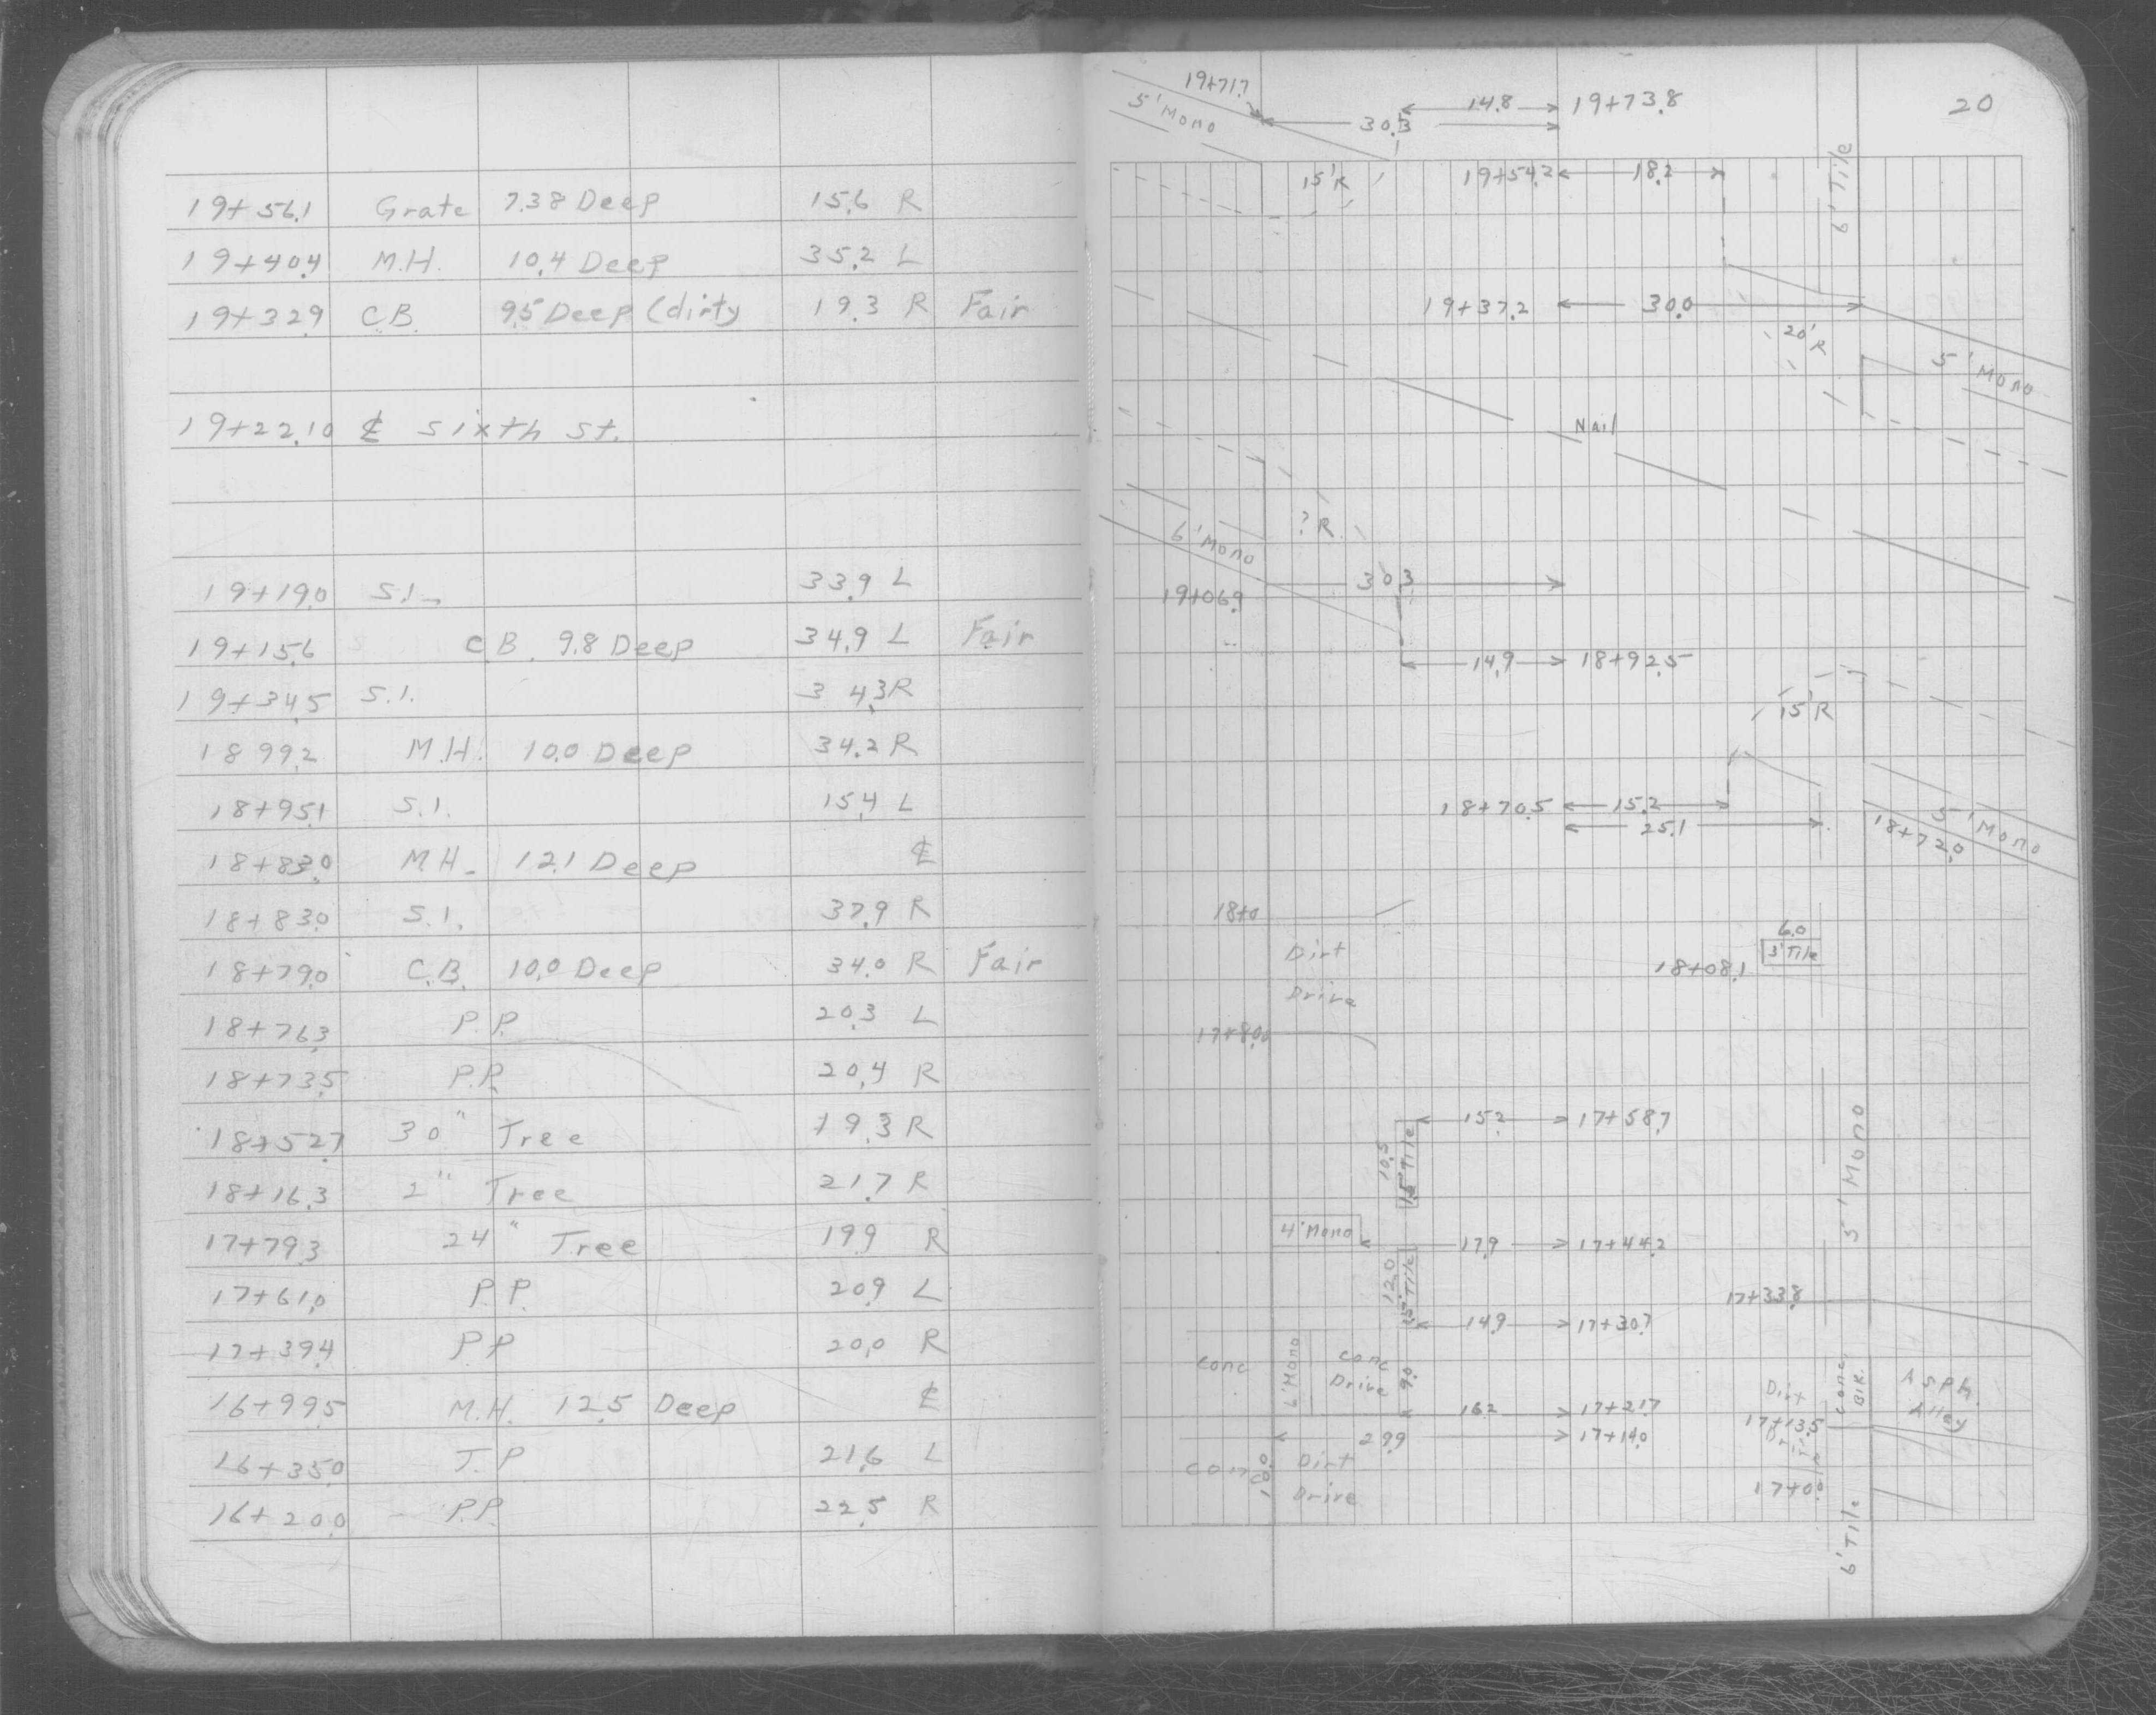 19+56.1 Grate 7.38 Deep 15.6 R
19+40.4 M.H. 10.4 Deep 35.2 L
19+32.9 C.B. 9.5 Deep (dirty 19.3 R Fair
19+22.10 ℄ Sixth St.
19+19.0 S.I. 33.9 L
19+15.6 C.B. 9.8 Deep 34.9 L Fair
19+34.5 S.I. 34.3 R
18 99.2 M.H. 10.0 Deep 34.2 R
18+95.1 S.I. 15.4 L
18+83.0 M.H. 12.1 Deep ℄
18+83.0 S.I. 37.9 R
18+79.0 C.B. 10.0 Deep 34.0 R Fair
18+76.3 P.P. 20.3 L
18+73.5 P.P. 20.4 R
18+52.7 30" Tree 19.3 R
18+16.3 2" Tree 21.7 R
17+79.3 24" Tree 19.9 R
17+61.0 P.P. 20.9 L
17+39.4 P.P. 20.0 R
16+99.5 M.H. 12.5 Deep ℄
16+35.0 T.P. 21.6 L
16+20.0 P.P. 22.5 R
20
19+71.7
5' Mono
14.8 19+73.8
30.3
6' Tile
15'R 19+54.2 18.2
19+37.2 30.0
20'R
5' Mono
Nail
?R.
6' Mono
30.3
19+06.9
14.9 18+92.5
15'R
18+70.5 15.2
25.1
5' Mono
18+72.0
18+0
Dirt
Drive
6.0
3' Tile
18+08.1
17+80.0
15.2 17+58.7
10.5
15" Tile
5' Mono
4' Mono
17.9 17+44.2
12.0
17+33.8
14.9 17+30.7
Conc
6' Mono
Conc
Drive
9.0
16.2 17+21.7
Dirt
Conc.
Blk.
Asph.
Alley
17+13.5
29.9 17+14.0
Conc
10.0
Dirt
Drive
17+00
6' Tile